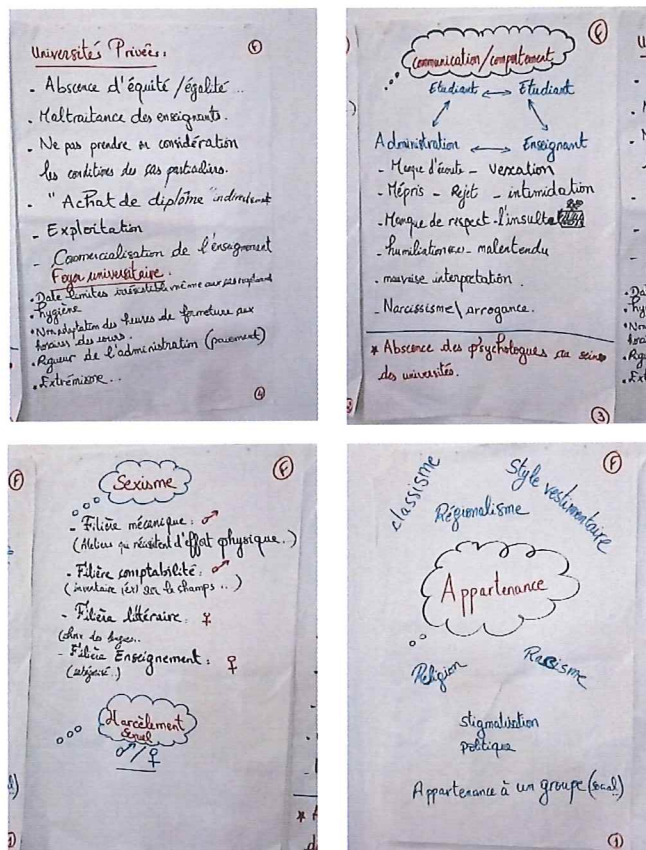 Universités Privées :
F
- Absence d'équité / égalité ...
- Maltraitance des enseignants.
- Ne pas prendre en considération
les conditions des cas particuliers.
- "Achat de diplôme" indirectement
- Exploitation
- Commercialisation de l'enseignement
Foyer universitaire.
• Date limites même aux
• hygiène
• Non adaptation des heures de fermeture aux
horaires des cours.
• Rigueur de l'administration (paiement)
• Extrémisme ..
4
F
communication/comportement
Etudiant ↔ Etudiant
Administration ↔ Enseignant
- Manque d'écoute - vexation
- Mépris - Rejet - intimidation
- Manque de respect - l'insulte
- humiliation - malentendu
- mauvaise interprétation.
- Narcissisme \ arrogance.
* Absence des psychologues au sein
des universités.
3
F
Sexisme
- Filière mécanique : ♂
(Ateliers qui nécessitent d'effort physique..)
- Filière comptabilité : ♂
(inventaire (ex) sur le champs ...)
- Filière littéraire : ♀
- Filière Enseignement : ♀
Harcèlement
sexuel
♂ / ♀
F
classisme
Style vestimentaire
Régionalisme
Appartenance
Religion
Racisme
stigmatisation
politique
Appartenance à un groupe (social)
1